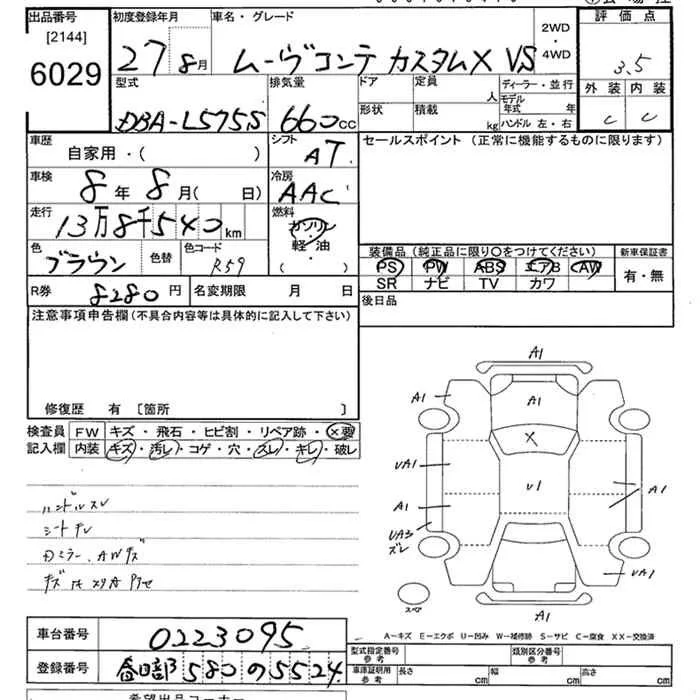 出品番号 初度登録年月 車名・グレード 2WD・4WD 評価点
[2144]
6029
27 8月 ムーヴコンテ カスタムX VS 3.5
型式 排気量 ドア 定員 人 ディーラー・並行 外装 内装
DBA-L575S 660cc 形状 積載 kg モデル年式 年 ハンドル 左・右 C C
車歴 自家用・( ) シフト AT セールスポイント (正常に機能するものに限ります)
車検 8年8月( 日) 冷房 AAC
走行 13万8千540km 燃料 ガソリン・軽油・( )
色 ブラウン 色替 色コード R59
装備品 (純正品に限り○をつけてください) 新車保証書
PS PW ABS エアB AW 有・無
SR ナビ TV カワ
R券 8280円 名変期限 月 日 後日品
注意事項申告欄(不具合内容等は具体的に記入して下さい)
修復歴 有 [箇所 ]
検査員記入欄 FW キズ・飛石・ヒビ割・リペア跡・×要
内装 キズ・汚レ・コゲ・穴・スレ・キレ・破レ
ハンドルスレ
シートキレ
A1
A1 A1 A1
X
UA1 U1 A1
A1
UA3
ズレ
UA1
スペア
A1
A-キズ E-エクボ U-凹み W-補修跡 S-サビ C-腐食 XX-交換済
車台番号 0223095
型式指定番号 参考 類別区分番号 参考
登録番号 春日部 580 の 5524
車庫証明用 参考 長さ cm 幅 cm 高さ cm
希望出品コーナー